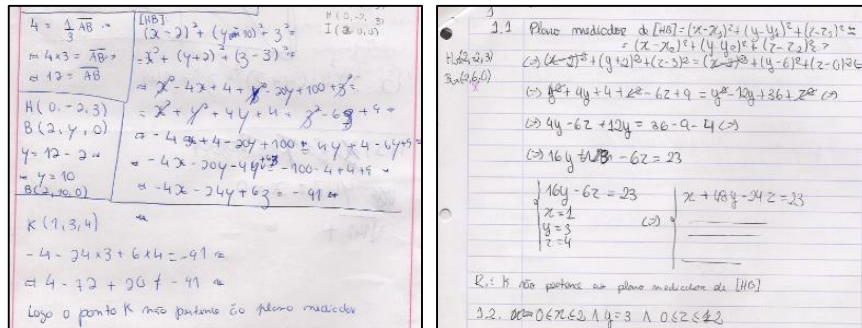 4 = 1/3 AB ⇔
⇔ 4×3 = AB ⇔
⇔ 12 = AB
H(0,-2,3)
B(2,y,0)
y = 12 - 2 ⇔
⇔ y = 10
B(2,10,0)
[HB]:
(x-2)² + (y-10)² + z² =
= x² + (y+2)² + (z-3)² ⇔
⇔ x² - 4x + 4 + y² - 20y + 100 + z² =
= x² + y² + 4y + 4 + z² - 6z + 9 ⇔
⇔ -4x + 4 - 20y + 100 = 4y + 4 - 6z + 9 ⇔
⇔ -4x - 20y - 4y + 6z = -100 - 4 + 4 + 9 ⇔
⇔ -4x - 24y + 6z = -91 ⇔
H(0,-2,3)
K(1,3,4)
-4 - 24×3 + 6×4 = -91 ⇔
⇔ 4 - 72 + 20 ≠ -91 ⇔
Logo o ponto K não pertence ao plano mediador
1.1 Plano mediador de [HB] = (x-x₁)² + (y-y₁)² + (z-z₁)² =
= (x-x₂)² + (y-y₂)² + (z-z₂)² ⇔
(⇔) (x-2)² + (y+2)² + (z-3)² = (x-2)² + (y-6)² + (z-0)² ⇔
(⇔) y² + 4y + 4 + z² - 6z + 9 = y² - 12y + 36 + z² (⇔)
(⇔) 4y - 6z + 12y = 36 - 9 - 4 (⇔)
(⇔) 16y - 6z = 23
16y - 6z = 23
x = 1
y = 3
z = 4
(⇔)
x + 48y - 24z = 23
R.: K não pertence ao plano mediador de [HB]
1.2. 0 ≤ x ≤ 2 ∧ y = 3 ∧ 0 ≤ z ≤ 12